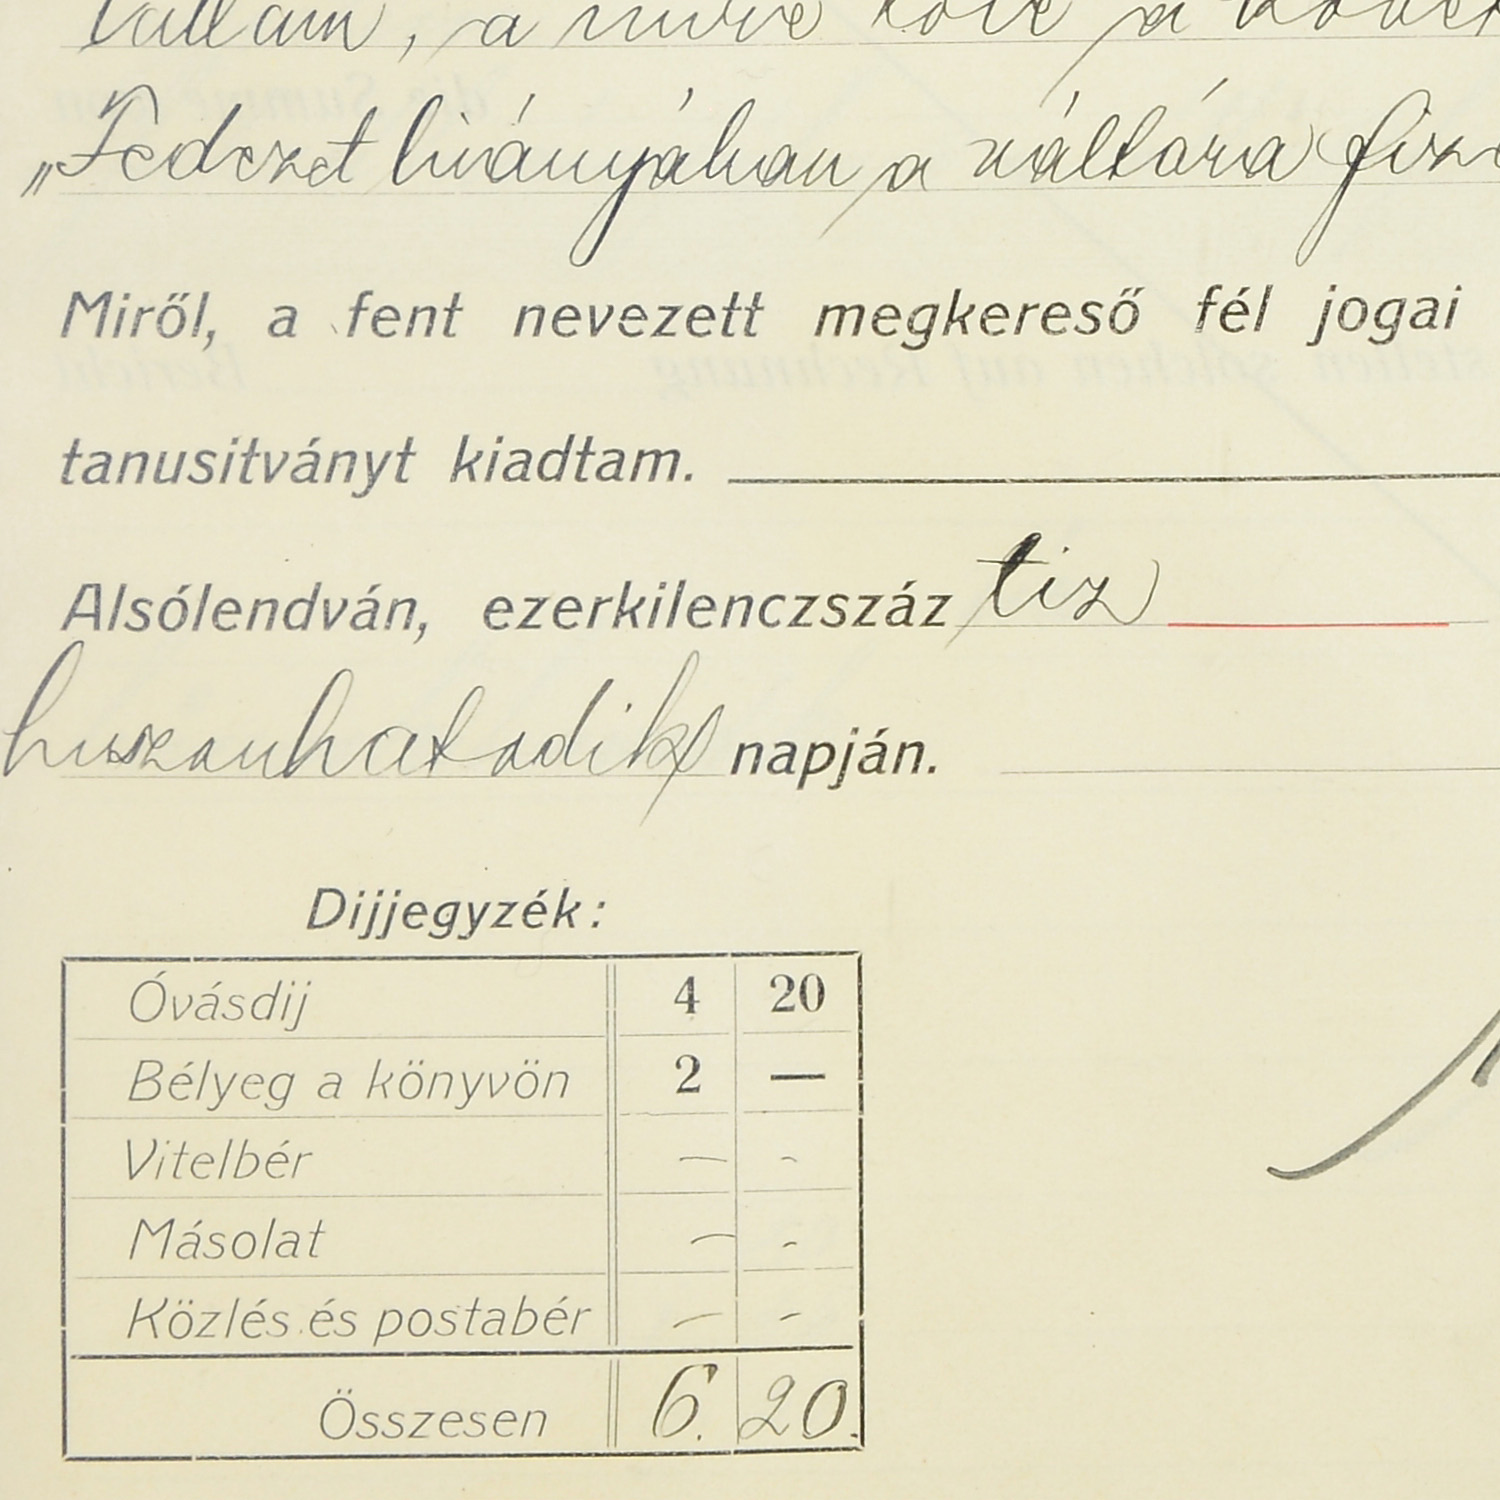 találtam, a mire tőle a követ
„Fedezet hiányában a váltóra fize
Miről, a fent nevezett megkereső fél jogai
tanusitványt kiadtam.
Alsólendván, ezerkilenczszáz tiz
huszonhatodik napján.
Dijjegyzék:
Óvásdij 4 20
Bélyeg a könyvön 2 —
Vitelbér — -
Másolat — -
Közlés és postabér — -
Összesen 6. 20.